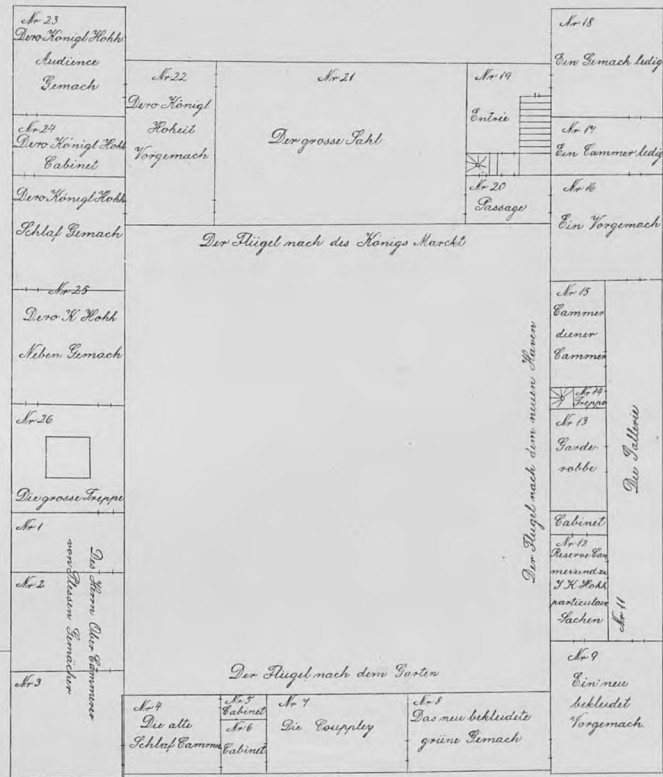 Nr 23
Dero Königl Hohh
Audience
Gemach
Nr 24
Dero Königl Hohh
Cabinet
Dero Königl Hohh
Schlaf Gemach
Nr 25
Dero K Hohh
Neben Gemach
Nr 26
Die grosse Treppe
Nr 1
Nr 2
Nr 3
Des Herrn Ober Cämmerer
von Plessen Gemächer
Nr 22
Dero Königl
Hoheit
Vorgemach
Nr 21
Der grosse Sahl
Nr 19
Entrée
Nr 20
Passage
Der Flügel nach des Königs Marckt
Nr 18
Ein Gemach ledig
Nr 17
Ein Cammer ledig
Nr 16
Ein Vorgemach
Nr 15
Cammer
diener
Cammer
Nr 14
Treppe
Nr 13
Garde-
robbe
Cabinet
Nr 12
Reserve Cam
mer und zu
I K Hohh
particulair
Sachen
Die Gallerie
Nr 11
Der Flügel nach dem neuen Haven
Nr 9
Ein neu
bekleidet
Vorgemach
Der Flügel nach dem Garten
Nr 4
Die alte
Schlaf Camm
Nr 5
Cabinet
Nr 6
Cabinet
Nr 7
Die Couppley
Nr 8
Das neu bekleidete
grüne Gemach